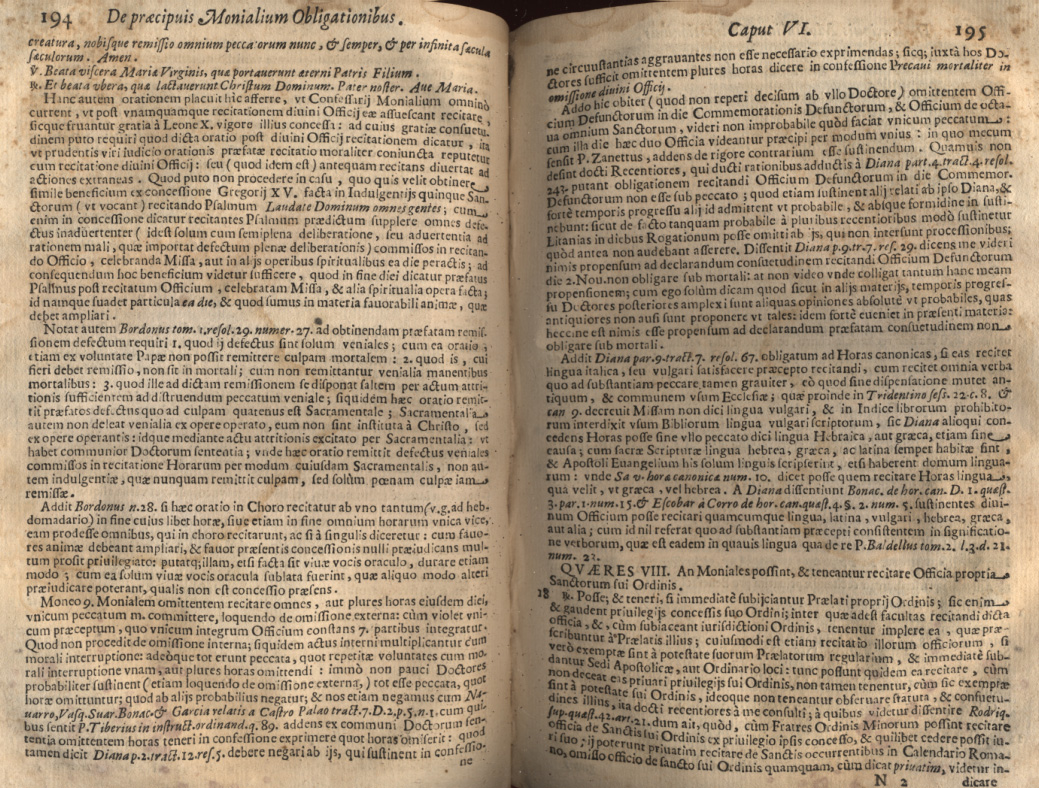 194 De præcipuis Monialium Obligationibus.
creatura, nobisque remissio omnium peccatorum nunc, & semper, & per infinita sæcula
sæculorum. Amen.
℣. Beata viscera Mariæ Virginis, quæ portauerunt æterni Patris Filium.
℟. Et beata vbera, quæ lactauerunt Christum Dominum. Pater noster. Aue Maria.
Hanc autem orationem placuit hic afferre, vt Confessarij Monialium omninò
current, vt post vnamquamque recitationem diuini Officij eæ assuescant recitare,
sicque fruantur gratiâ à Leone X. vigore illius concessa: ad cuius gratiæ consuetu-
dinem puto requiri quod dicta oratio post diuini Officij recitationem dicatur, ita
vt prudentis viri iudicio orationis præfatæ recitatio moraliter coniuncta reputetur
cum recitatione diuini Officij: seu (quod idem est) antequam recitans diuertat ad
actiones extraneas. Quod puto non procedere in casu, quo quis velit obtinere
simile beneficium ex concessione Gregorij XV. facta in Indulgentijs quinque San-
ctorum (vt vocant) recitando Psalmum Laudate Dominum omnes gentes; cum
enim in concessione dicatur recitantes Psalmum prædictum supplere omnes defe-
ctus inaduertenter (idest solum cum semiplena deliberatione, seu aduertentia ad
rationem mali, quæ importat defectum plenæ deliberationis) commissos in recitan-
do Officio, celebranda Missa, aut in alijs operibus spiritualibus ea die peractis; ad
consequendum hoc beneficium videtur sufficere, quod in fine diei dicatur præfatus
Psalmus post recitatum Officium, celebratam Missa, & alia spiritualia opera facta;
id namque suadet particula ea die, & quod sumus in materia fauorabili animæ, quæ
debet ampliari.
Notat autem Bordonus tom. 1. resol. 29. numer. 27. ad obtinendam præfatam remis-
sionem defectum requiri 1. quod ij defectus sint solum veniales; cum ea oratio,
etiam ex voluntate Papæ non possit remittere culpam mortalem: 2. quod is, cui
fieri debet remissio, non sit in mortali; cum non remittantur venialia manentibus
mortalibus: 3. quod ille ad dictam remissionem se disponat saltem per actum attri-
tionis sufficientem ad distruendum peccatum veniale; siquidem hæc oratio remit-
tit præfatos defectus quo ad culpam quatenus est Sacramentale; Sacramentalia
autem non deleat venialia ex opere operato, eum non sint instituta à Christo, sed
ex opere operantis: idque mediante actu attritionis excitato per Sacramentalia: vt
habet communior Doctorum sententia; vnde hæc oratio remittit defectus veniales
commissos in recitatione Horarum per modum cuiusdam Sacramentalis, non au-
tem indulgentiæ, quæ nunquam remittit culpam, sed solùm pœnam culpæ iam
remissæ.
Addit Bordonus n. 28. si hæc oratio in Choro recitatur ab vno tantum (v.g. ad heb-
domadario) in fine cuius libet horæ, siue etiam in fine omnium horarum vnica vice,
eam prodesse omnibus, qui in choro recitarunt, ac si à singulis diceretur: cum fauo-
res animæ debeant ampliari, & fauor præsentis concessionis nulli præiudicans mul-
tum prosit priuilegiato: putatq; illam, etsi facta sit viuæ vocis oraculo, durare etiam
modo; cum ea solum viuæ vocis oracula sublata fuerint, quæ aliquo modo alteri
præiudicare poterant, qualis non est concessio præsens.
Moneo 9. Monialem omittentem recitare omnes, aut plures horas eiusdem diei,
vnicum peccatum m. committere, loquendo de omissione externa: cùm violet vni-
cum præceptum, quo vnicum integrum Officium constans 7. partibus integratur.
Quod non procedit de omissione interna; siquidem actus interni multiplicantur cùm
morali interruptione: adeòque tot erunt peccata, quot repetitæ voluntates cum mo-
rali interruptione vnam, aut plures horas omittendi: immò non pauci Doctores
probabiliter sustinent (etiam loquendo de omissione externa,) tot esse peccata, quot
horæ omittuntur; quod ab alijs probabilius negatur; & nos etiam negamus cum Na-
uarro, Vasq. Suar. Bonac. & Garcia relatis a Castro Palao tract. 7. D. 2. p. 5. n. 1. cum qui-
bus sentit P. Tiberius in instruct. ordinand. q. 89. addens ex communi Doctorum sen-
tentia omittentem horas teneri in confessione exprimere quot horas omiserit: quod
tamen dicit Diana p. 2. tract. 12. res. 5. debere negari ab ijs, qui sustinent in confessio-
ne
Caput VI. 195
ne circunstantias aggrauantes non esse necessario exprimendas; sicq; iuxtà hos Do-
ctores sufficit omittentem plures horas dicere in confessione Precaui mortaliter in
omissione diuini Officij.
Addo hic obiter (quod non reperi decisum ab vllo Doctore) omittentem Offi-
cium Defunctorum in die Commemorationis Defunctorum, & Officium de octa-
ua omnium Sanctorum, videri non improbabile quòd faciat vnicum peccatum:
cum illa die hæc duo Officia videantur præcipi per modum vnius: in quo mecum
sensit P. Zanettus, addens de rigore contrarium esse sustinendum. Quamuis non
desint docti Recentiores, qui ducti rationibus adductis à Diana part. 4. tract. 4. resol.
243. putant obligationem recitandi Officium Defunctorum in die Commemor.
Defunctorum non esse sub peccato; quod etiam sustinent alij relati ab ipso Diana, &
fortè temporis progressu alij id admittent vt probabile, & absque formidine in susti-
nebunt: sicut de facto tanquam probabile à pluribus recentioribus modò sustinetur
Litanias in diebus Rogationum posse omitti ab ijs, qui non intersunt processionibus;
quòd antea non audebant asserere. Dissentit Diana p. 9. tr. 7. res. 29. dicens me videri
nimis propensum ad declarandum consuetudinem recitandi Officium Defunctorum
die 2. Nou. non obligare sub mortali: at non video vnde colligat tantum hanc meam
propensionem; cum ego solùm dicam quod sicut in alijs materijs, temporis progres-
su Doctores posteriores amplexi sunt aliquas opiniones absolutè vt probabiles, quas
antiquiores non ausi sunt proponere vt tales: idem fortè eueniet in præsenti materia:
hoccine est nimis esse propensum ad declarandum præfatam consuetudinem non
obligare sub mortali.
Addit Diana par. 9. tract. 7. resol. 67. obligatum ad Horas canonicas, si eas recitet
lingua italica, seu vulgari satisfacere præcepto recitandi, cum recitet omnia verba
quo ad substantiam peccare tamen grauiter, eò quod sine dispensatione mutet an-
tiquum, & communem vsum Ecclesiæ; quæ proinde in Tridentino sess. 22. c. 8. &
can 9. decreuit Missam non dici lingua vulgari, & in Indice librorum prohibito-
rum interdixit vsum Bibliorum lingua vulgari scriptorum, sic Diana alioqui con-
cedens Horas posse sine vllo peccato dici lingua Hebraica, aut græca, etiam sine
causa; cum sacræ Scripturæ lingua hebrea, græca, ac latina semper habitæ sint,
& Apostoli Euangelium his solum linguis scripserint, etsi haberent domum lingua-
rum: vnde Sa v. hora canonica num. 10. dicet posse quem recitare Horas lingua,
qua velit, vt græca, vel hebrea. A Diana dissentiunt Bonac. de hor. can. D. 1. quæst.
3. par. 1. num. 15. & Escobar à Corro de hor. can. quæst. 4. §. 2. num. 5. sustinentes diui-
num Officium posse recitari quacumque lingua, latina, vulgari, hebrea, græca,
aut alia; cum id nil referat quo ad substantiam præcepti consistentem in significatio-
ne verborum, quæ est eadem in quauis lingua qua de re P. Baldellus tom. 2. l. 3. d. 21.
num. 23.
QVÆRES VIII. An Moniales possint, & teneantur recitare Officia propria
Sanctorum sui Ordinis.
18 ℟. Posse; & teneri, si immediatè subijciantur Prælati proprij Ordinis; sic enim
& gaudent priuilegijs concessis suo Ordini; inter quæ adest facultas recitandi dicta
officia, &, cùm subiaceant iurisdictioni Ordinis, tenentur implere ea, quæ præ-
scribuntur à Prælatis illius; cuiusmodi est etiam recitatio illorum officiorum, si
verò exemptæ sint à potestate suorum Prælatorum regularium, & immediatè sub-
dantur Sedi Apostolicæ, aut Ordinario loci: tunc possunt quidem ea recitare, cùm
non deceat eas priuari priuilegijs sui Ordinis, non tamen tenentur, cùm sic exemptæ
sint à potestate sui Ordinis, ideoque non teneantur obseruare statuta, & consuetu-
dines illius, ita docti recentiores à me consulti; à quibus videtur dissentire Rodriq.
sup. quæst. 42. art. 21. dum ait, quòd, cùm Fratres Ordinis Minorum possint recitare
officia de Sanctis sui Ordinis ex priuilegio ipsis concesso, & quilibet cedere possit iu-
ri suo; ij poterunt priuatim recitare de Sanctis occurrentibus in Calendario Roma-
no, omisso officio de sancto sui Ordinis quamquam, cùm dicat priuatim, videtur in-
N 2 dicare